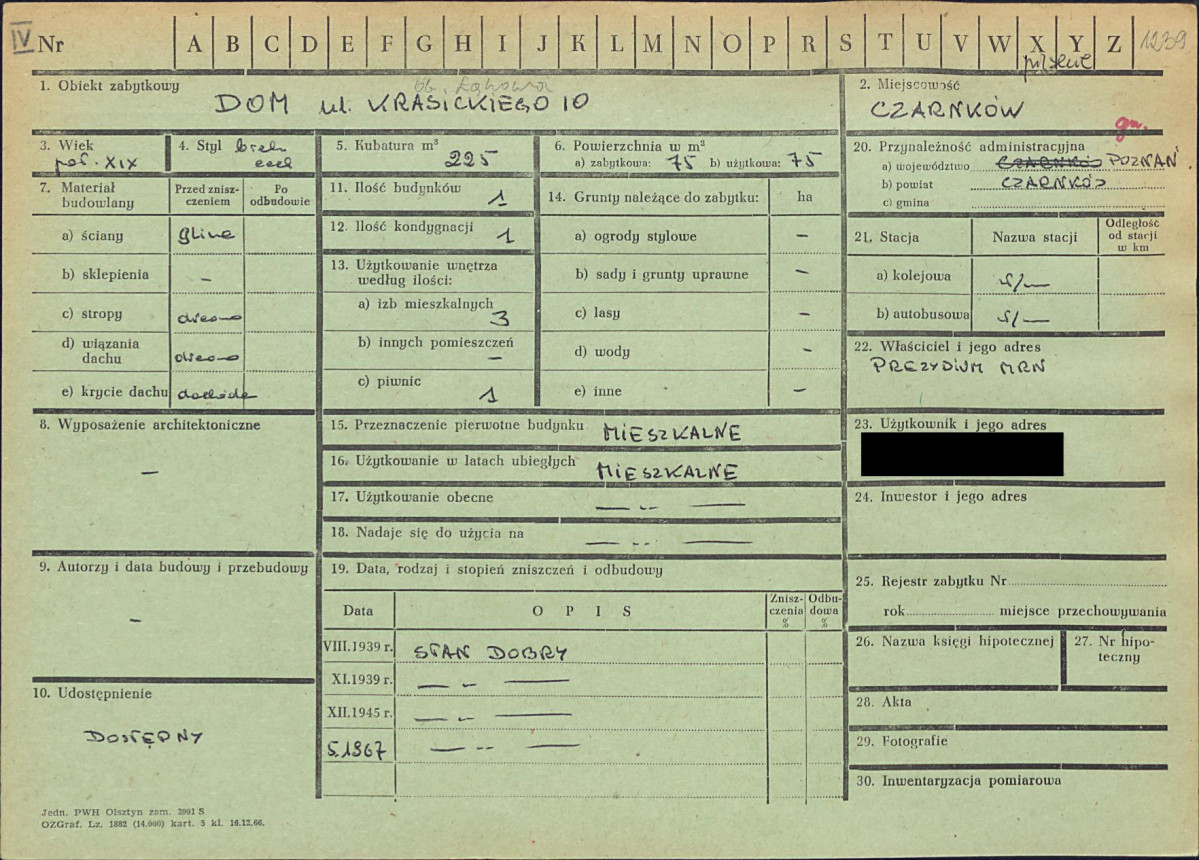 IV Nr A B C D E F G H I J K L M N O P R S T U V W X Y Z 1239
piłskie
1. Obiekt zabytkowy
ob. Łąkowa
DOM ul. KRASICKIEGO 10
2. Miejscowość
CZARNKÓW
gm.
3. Wiek
poł. XIX
4. Styl brak
cech
5. Kubatura m³ 225
6. Powierzchnia w m²
a) zabytkowa: 75 b) użytkowa: 75
20. Przynależność administracyjna
a) województwo CZARNKÓW POZNAŃ
b) powiat CZARNKÓW
c) gmina
7. Materiał budowlany
Przed znisz-
czeniem
Po
odbudowie
a) ściany glina
b) sklepienia –
c) stropy drewno
d) wiązania
dachu drewno
e) krycie dachu dachówka
11. Ilość budynków 1
12. Ilość kondygnacji 1
13. Użytkowanie wnętrza
według ilości:
a) izb mieszkalnych 3
b) innych pomieszczeń –
c) piwnic 1
14. Grunty należące do zabytku: ha
a) ogrody stylowe –
b) sady i grunty uprawne –
c) lasy –
d) wody –
e) inne –
21. Stacja Nazwa stacji
Odległość
od stacji
w km
a) kolejowa
b) autobusowa
22. Właściciel i jego adres
PREZYDIUM MRN
8. Wyposażenie architektoniczne
–
15. Przeznaczenie pierwotne budynku MIESZKALNE
16. Użytkowanie w latach ubiegłych MIESZKALNE
17. Użytkowanie obecne — „ —
18. Nadaje się do użycia na — „ —
23. Użytkownik i jego adres
24. Inwestor i jego adres
9. Autorzy i data budowy i przebudowy
–
19. Data, rodzaj i stopień zniszczeń i odbudowy
Data OPIS
Znisz-
czenia
%
Odbu-
dowa
%
VIII.1939 r. STAN DOBRY
XI.1939 r. — „ —
XII.1945 r. — „ —
5.1967 — „ —
25. Rejestr zabytku Nr
rok miejsce przechowywania
26. Nazwa księgi hipotecznej
27. Nr hipo-
teczny
28. Akta
29. Fotografie
30. Inwentaryzacja pomiarowa
10. Udostępnienie
DOSTĘPNY
Jedn. PWH Olsztyn zam. 3991 S
OZGraf. Lz. 1882 (14.000) kart. 5 kl. 16.12.66.